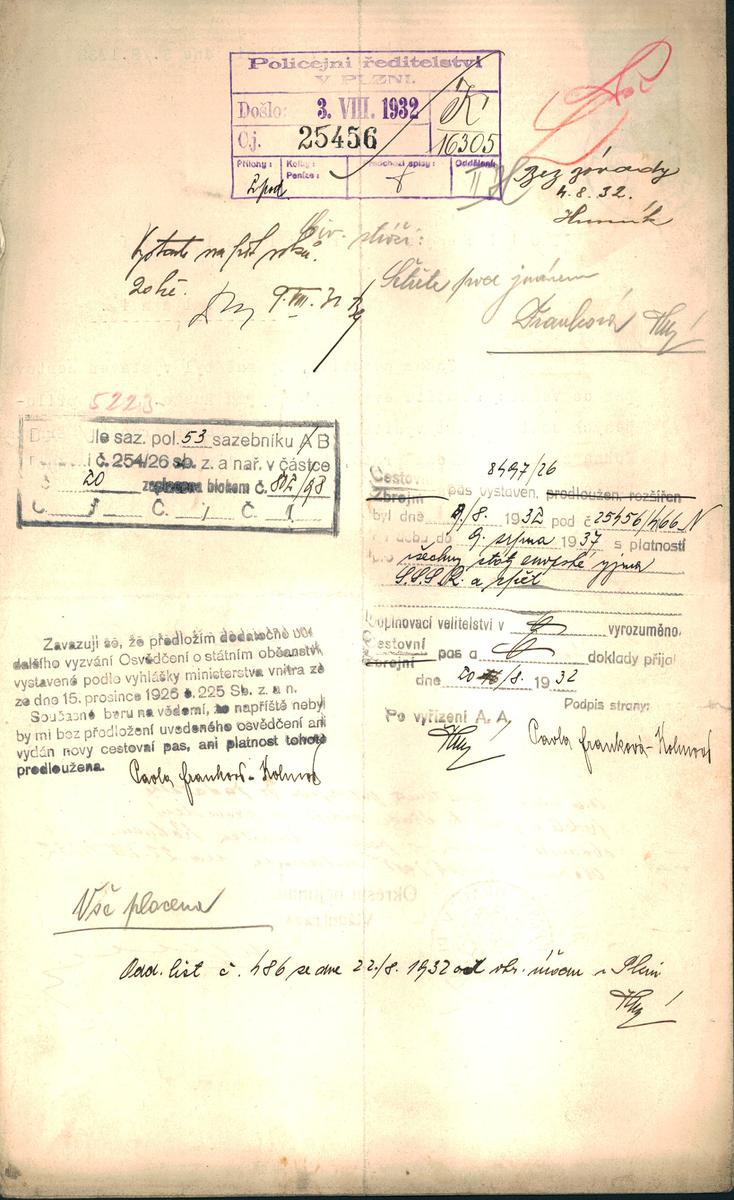 Policejní ředitelství
V PLZNI.
Došlo: 3. VIII. 1932
K
Čj. 25456
16305
Přílohy: Kolky: Peníze: Předchozí spisy: Oddělení:
II
bez závady
4.8.32.
Vystavte na pět roků.
9.VIII.32
Pište pod jménem
Franková
5223
dle saz. pol. 53 sazebníku A B
č. 254/26 sb. z. a nař. v částce
20 zaplacena blokem č. 812/98
8497/26
Cestov.
Zbrojní pas vystaven, prodloužen, rozšířen
byl dne 9./8. 1932 pod č 25456/466 N
9. srpna 1937 s platností
všechny státy evropské vyjma
S.S.S.R. a zpět
Doplňovací velitelství v vyrozuměno.
Cestovní
Zbrojní pas a doklady přijal
dne 20/8. 1932
Podpis strany:
Po vyřízení A. A.
Pavla Franková-Kolmová
Zavazuji se, že předložím dodatečně
dalšího vyzvání Osvědčení o státním občanství,
vystavené podle vyhlášky ministerstva vnitra ze
ze dne 15. prosince 1926 č. 225 Sb. z. a n.
Současně beru na vědomí, že napříště nebyl
by mi bez předložení uvedeného osvědčení ani
vydán nový cestovní pas, ani platnost tohoto
prodloužena.
Pavla Franková-Kolmová
Vše placena
Odd. list č. 486 ze dne 22./8. 1932 od okr. úřadu v Plzni